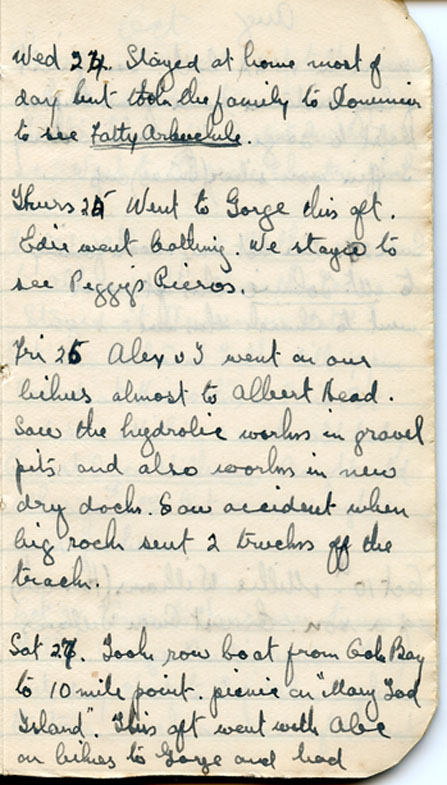 Wed 24. Stayed at home most of
day but took the family to Dominion
to see Fatty Arbuckle.
Thurs 25 Went to Gorge this aft.
Edie went bathing. We stayed to
see Peggy's Pieros.
Fri 26 Alex & I went on our
bikes almost to Albert Head.
Saw the hydrolic works in gravel
pits, and also works in new
dry dock. Saw accident when
big rock sent 2 trucks off the
track.
Sat 27. Took row boat from Oak Bay
to 10 mile point. picnic on "Mary Tod
Island". This aft went with Alec
on bikes to Gorge and had